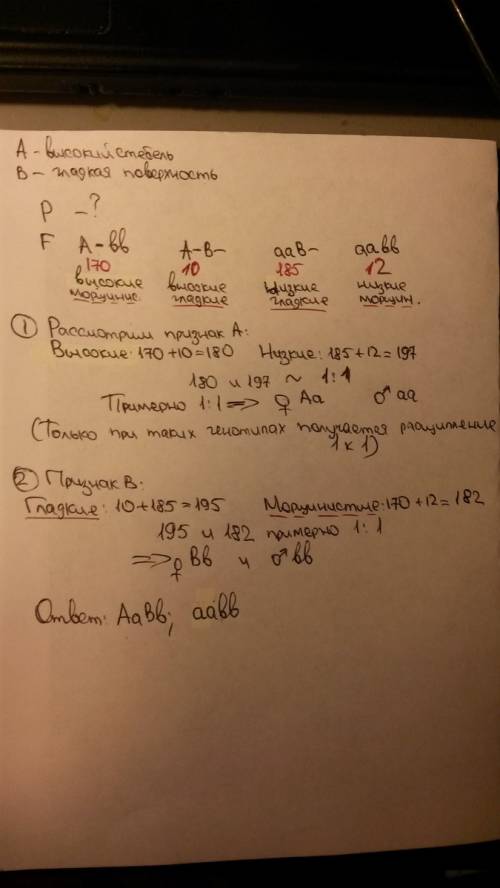 А – высокий стебель
В – гладкая поверхность
P – ?
F A – bb A – B – aaB – aabb
170 10 185 12
высокие высокие низкие низкие
морщинис. гладкие гладкие морщин.
① Рассмотрим признак А:
Высокие: 170 + 10 = 180 Низкие: 185 + 12 = 197
180 и 197 ~ 1:1
Примерно 1:1 => ♀ Aa ♂ aa
(Только при таких генотипах получается расщипление
1 к 1)
② Признак В:
Гладкие: 10 + 185 = 195 Морщинистые: 170 + 12 = 182
195 и 182 примерно 1:1
=> ♀ Bb и ♂ bb
Ответ: AaBb; aabb